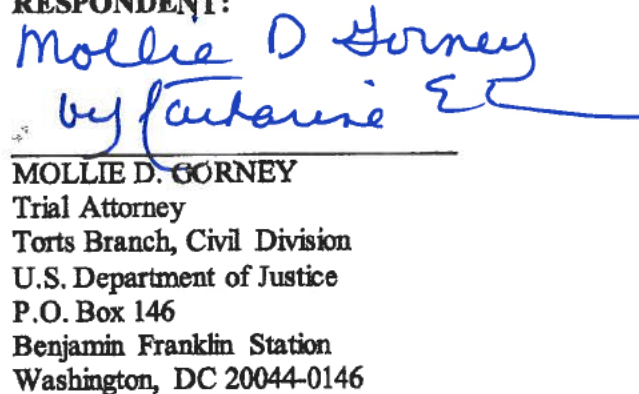 RESPONDENT:
Mollie D Gorney
by Catharine E
MOLLIE D. GORNEY
Trial Attorney
Torts Branch, Civil Division
U.S. Department of Justice
P.O. Box 146
Benjamin Franklin Station
Washington, DC 20044-0146